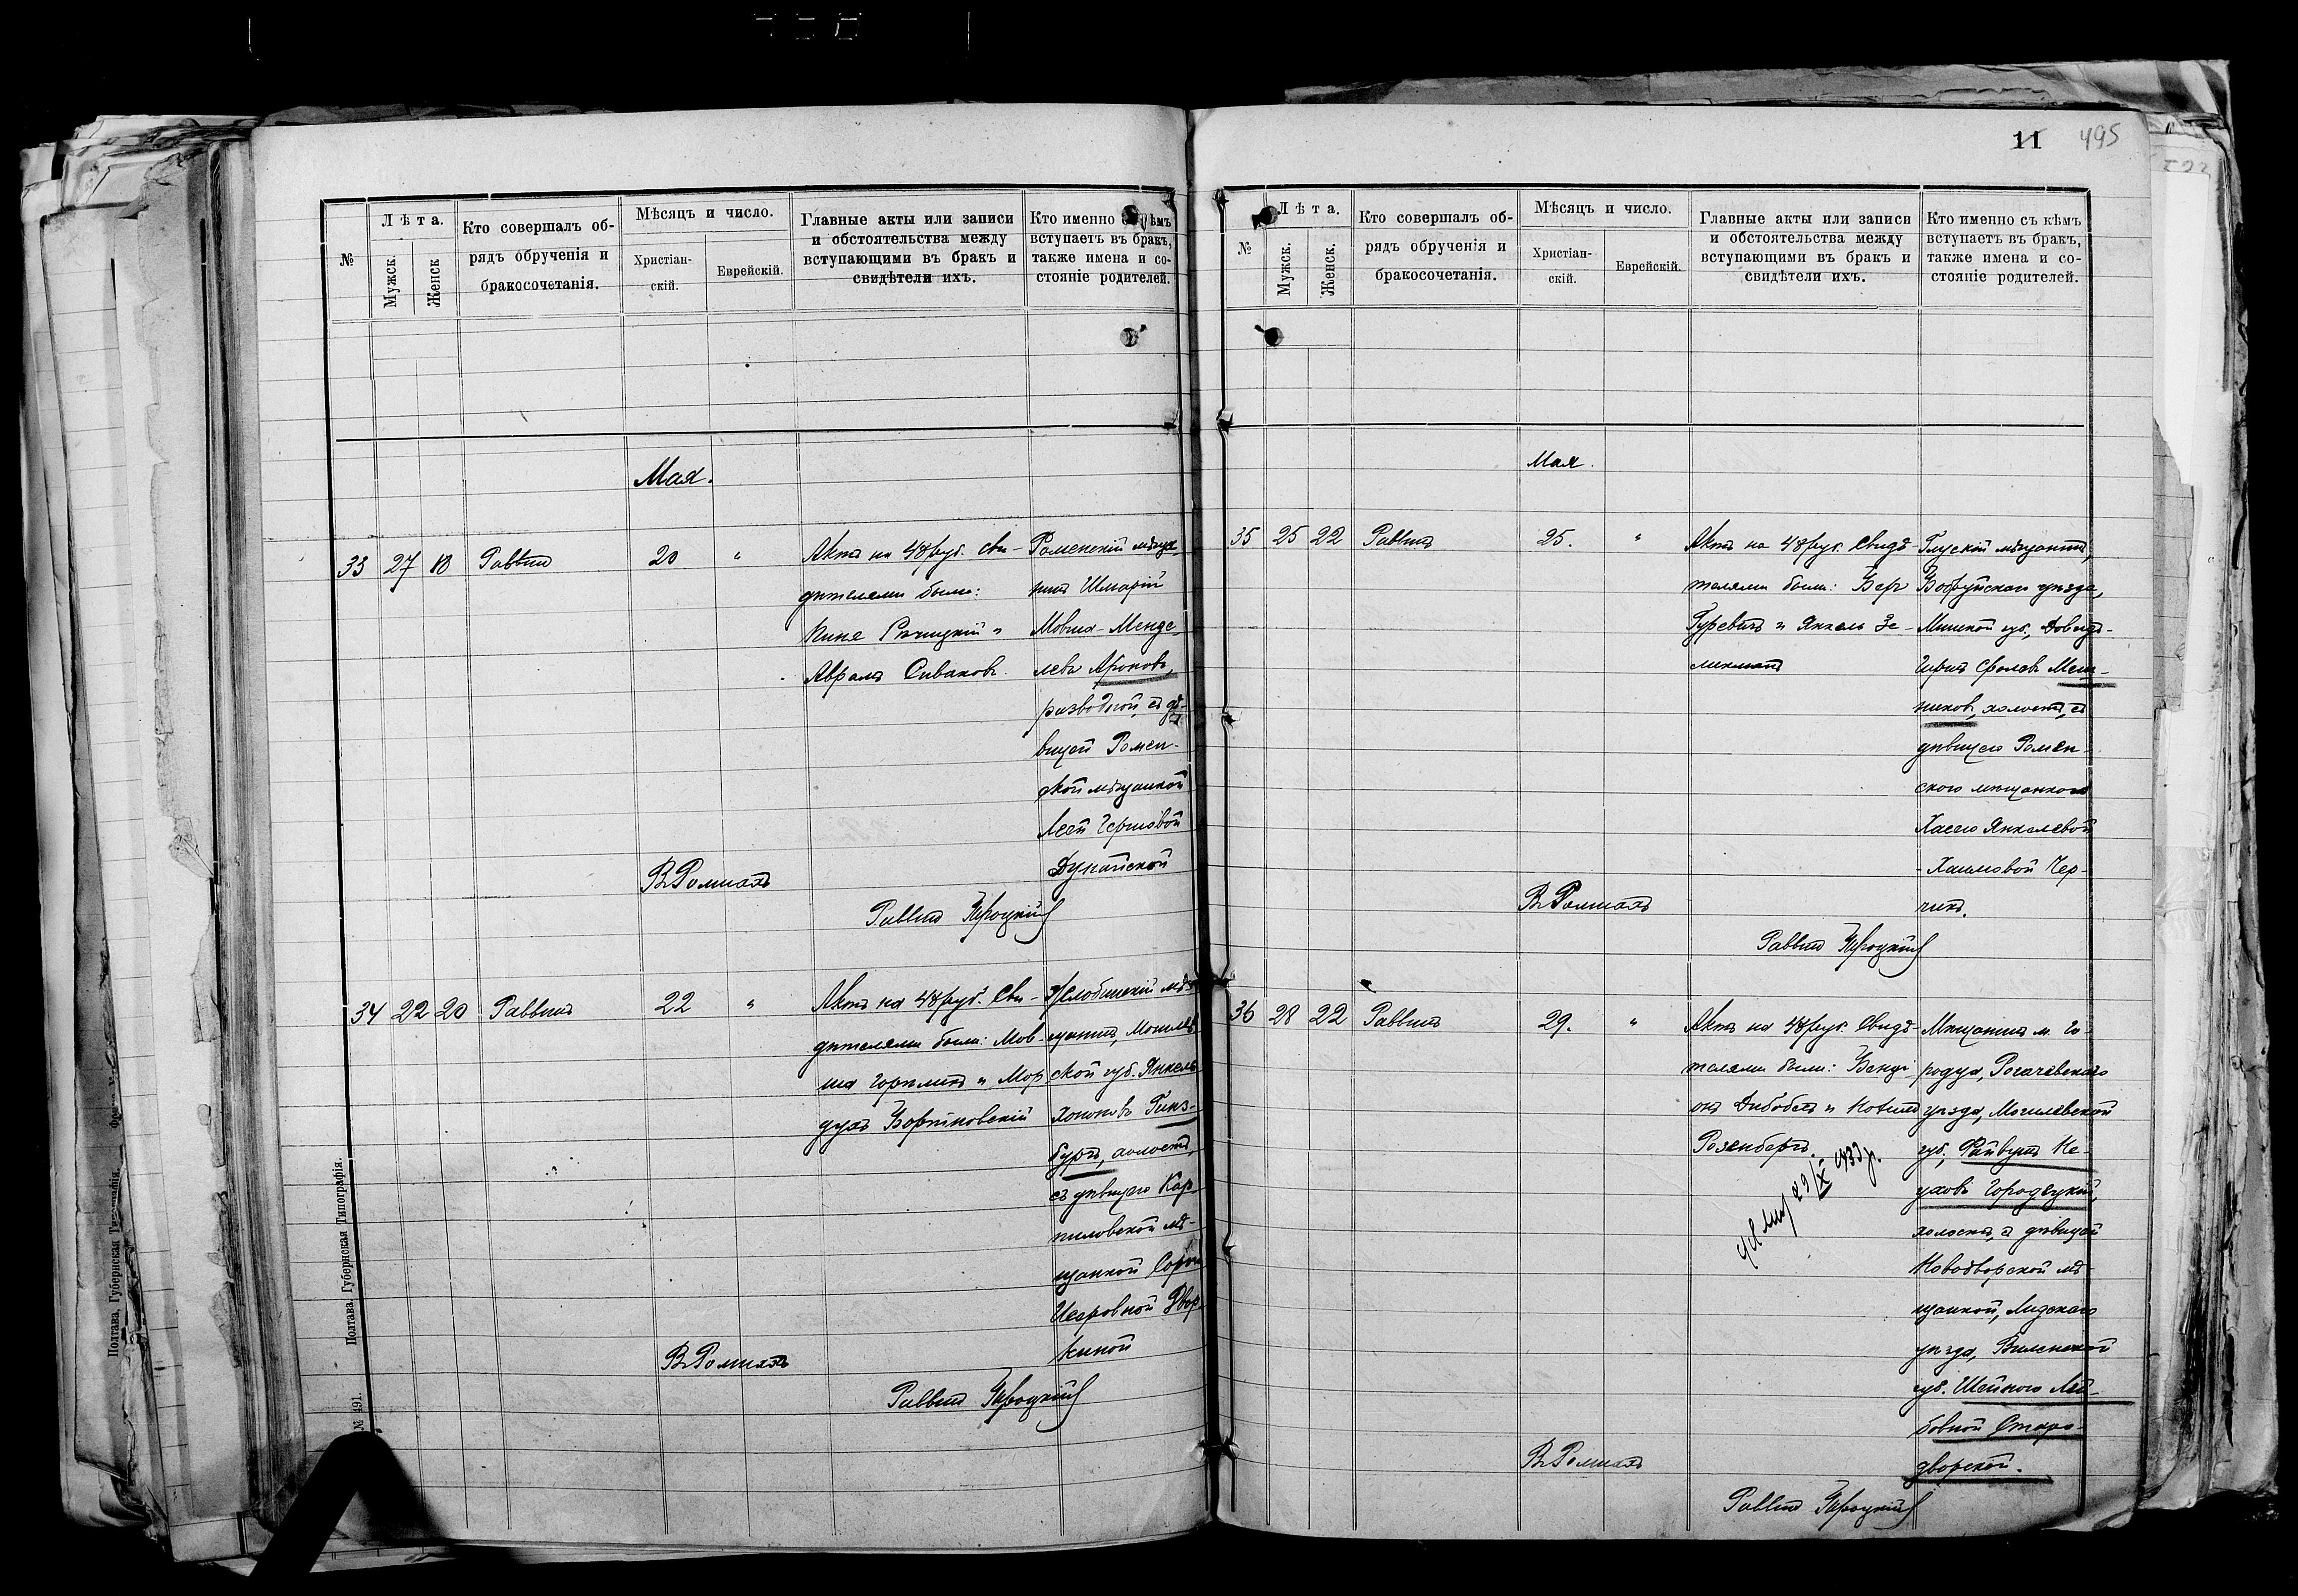 11 495
№
Лѣта.
Мужск.
Женск
Кто совершалъ об-
рядъ обрученія и
бракосочетанія.
Мѣсяцъ и число.
Христіан-
скій.
Еврейскій.
Главные акты или записи
и обстоятельства между
вступающими въ бракъ и
свидѣтели ихъ.
Кто именно съ кѣмъ
вступаетъ въ бракъ,
также имена и со-
стояніе родителей.
Мая.
33 27 18 Раввинъ 20 "
Актъ на 48 руб. Сви-
дѣтелями были:
Пиня Рѣчицкій и
Аврамъ Сиваковъ.
Роменскій мѣща-
нинъ Шмарій
Мовша-Менде-
левъ Ароновъ,
разводной, съ дѣ-
вицей Ромен-
ской мѣщанкой
Леей Гершовой
Дунайской
Въ Ромнахъ
Раввинъ
34 22 20 Раввинъ 22 "
Актъ на 48 руб. Сви-
дѣтелями были: Мов-
ша Горѣликъ и Мор
духъ Бортновскій
Жлобинскій мѣ-
щанинъ, Могилев
ской губ. Янкель
Хононовъ Гинз-
бургъ, холостъ,
съ дѣвицею Кар-
пиловской мѣ-
щанкой Сорой
Исеровной Двор-
киной
Въ Ромнахъ
Раввинъ
Полтава. Губернская Типографія.
№ 491.
Полтава, Губернская Типографія
№
Лѣта.
Мужск.
Женск.
Кто совершалъ об-
рядъ обрученія и
бракосочетанія.
Мѣсяцъ и число.
Христіан-
скій.
Еврейскій.
Главные акты или записи
и обстоятельства между
вступающими въ бракъ и
свидѣтели ихъ.
Кто именно съ кѣмъ
вступаетъ въ бракъ,
также имена и со-
стояніе родителей.
Мая.
35 25 22 Раввинъ 25. "
Актъ на 48 руб. Свидѣ-
телями были: Беръ
Гуревичъ и Янкель Зе-
ликманъ
Глускій мѣщанинъ,
Бобруйскаго уѣзда,
Минской губ., Довидъ-
Гиршъ Сролевъ Меш-
никовъ, холостъ, съ
дѣвицею Ромен-
ского мѣщанкою
Хасею Янкелевой
-Хаимовой Чер-
чикъ.
Въ Ромнахъ
Раввинъ
36 28 22 Раввинъ 29. "
Актъ на 48 руб. Свидѣ-
телями были: Бенці-
онъ Дибобесъ и Нотинъ
Розенбергъ.
29/IX 1933 г.
Мѣщанинъ м. Го-
родца, Рогачевскаго
уѣзда, Могилевской
губ., Файвушъ Не-
уховъ Городецкій,
холостъ, съ дѣвицей
Новодворской мѣ-
щанкой, Лидскаго
уѣзда, Виленской
губ. Шейною Лей-
бовной Старо-
дворской.
Въ Ромнахъ
Раввинъ